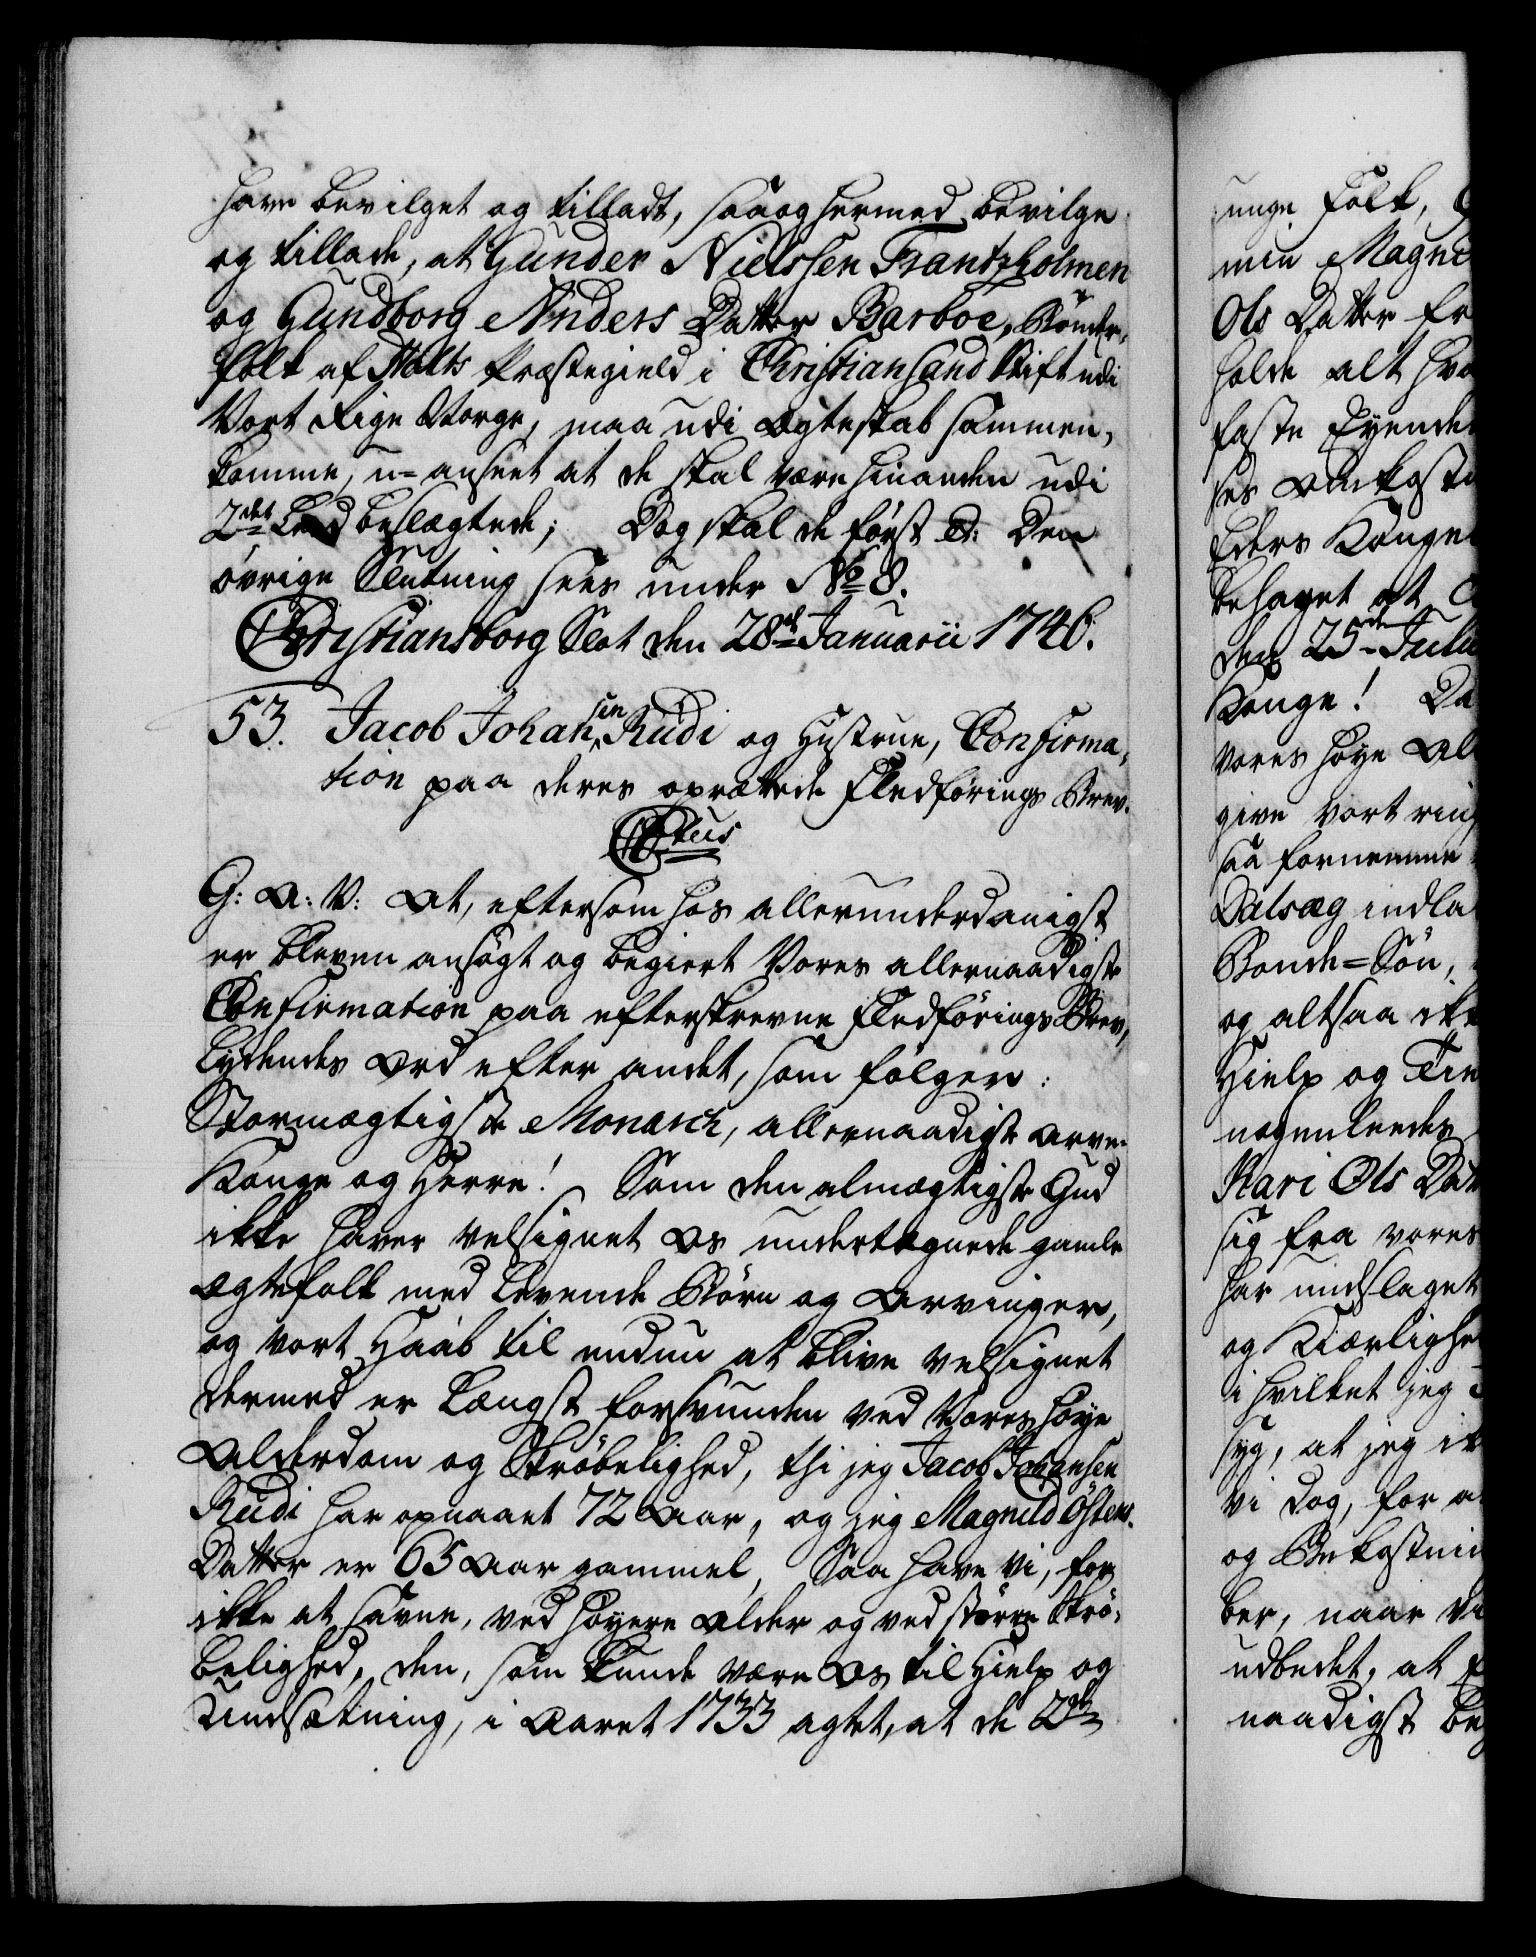 have bevilget og tilladt, saa og hermed bevilge
og tillade, at Gunder Nielssen Frantzholmen
og Gundborg Anders Datter Barboe, Bönder-
folk af Holts Præstegield i Christiansand Stift udi
Vort Rige Norge, maa udi Ægteskab sammen-
komme, u-anseet at de skal være hinanden udi
2det Leed beslægtede; Dog skal de först &: Den
övrige Slutning sees under No 8.
Christiansborg Slot den 28de Januarii 1746.
53. Jacob Johansen Rudi og Hustrue, Confirma-
tion paa deres oprættede Fledförings Brev.
C6tus
G: A: V: At, eftersom hos allerunderdanigst
er bleven ansögt og begiert Vores allernaadigste
Confirmation paa efterskrevne Fledförings Brev,
lydendes Ord efter andet, som fölger:
Stormægtigste Monarch, allernaadigste Arve-
Konge og Herre! Som den almægtigste Gud
ikke haver velsignet os undertegnede gamle
Ægtefolk med levende Börn og Arvinger,
og vort Haab til endnu at blive velsignet
dermed er længst forsvunden ved Vores höye
Alderdom og Skröbelighed, thi jeg Jacob Johansen
Rudi har opnaaet 72 Aar, og jeg Magnild Östens
Datter er 65 Aar gammel, Saa have vi, for
ikke at savne, ved höyere Alder og ved större Skrö-
belighed, den, som kunde være os til Hielp og
Undsætning, i Aaret 1733 agtet, at de 2de
unge Folk,
min Magni
Ols Datter fr
holde alt hva
faste Eyende
ses Omkostn
Eders Konge
behaget at
den 25de Julii
Konge! Da
vores höye Al
give vort ring
saa fornemme
Dalsæg indla
Bonde-Sön,
og altsaa ikke
Hielp og Tie
nogenleedes
Kari Ols Dat
sig fra vores
har undslaget
og Kiærlighe
i hvilket jeg
syg, at jeg ik
vi dog, for a
og Bekostnin
ber, naar vi
udbedet, at E
naadigst be